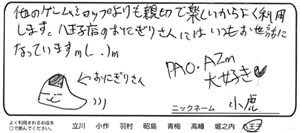 他のゲームショップよりも親切で楽しいからよく利用
します。八王子店のおにぎりさんにはいつもお世話に
なっていますm(..)m
←おにぎりさん
PAO.AZM
大好き♥
ニックネーム 小虎
よく利用されるお店を
○で囲んでください。
立川 小作 羽村 昭島 青梅 高幡 堀之内 八王子